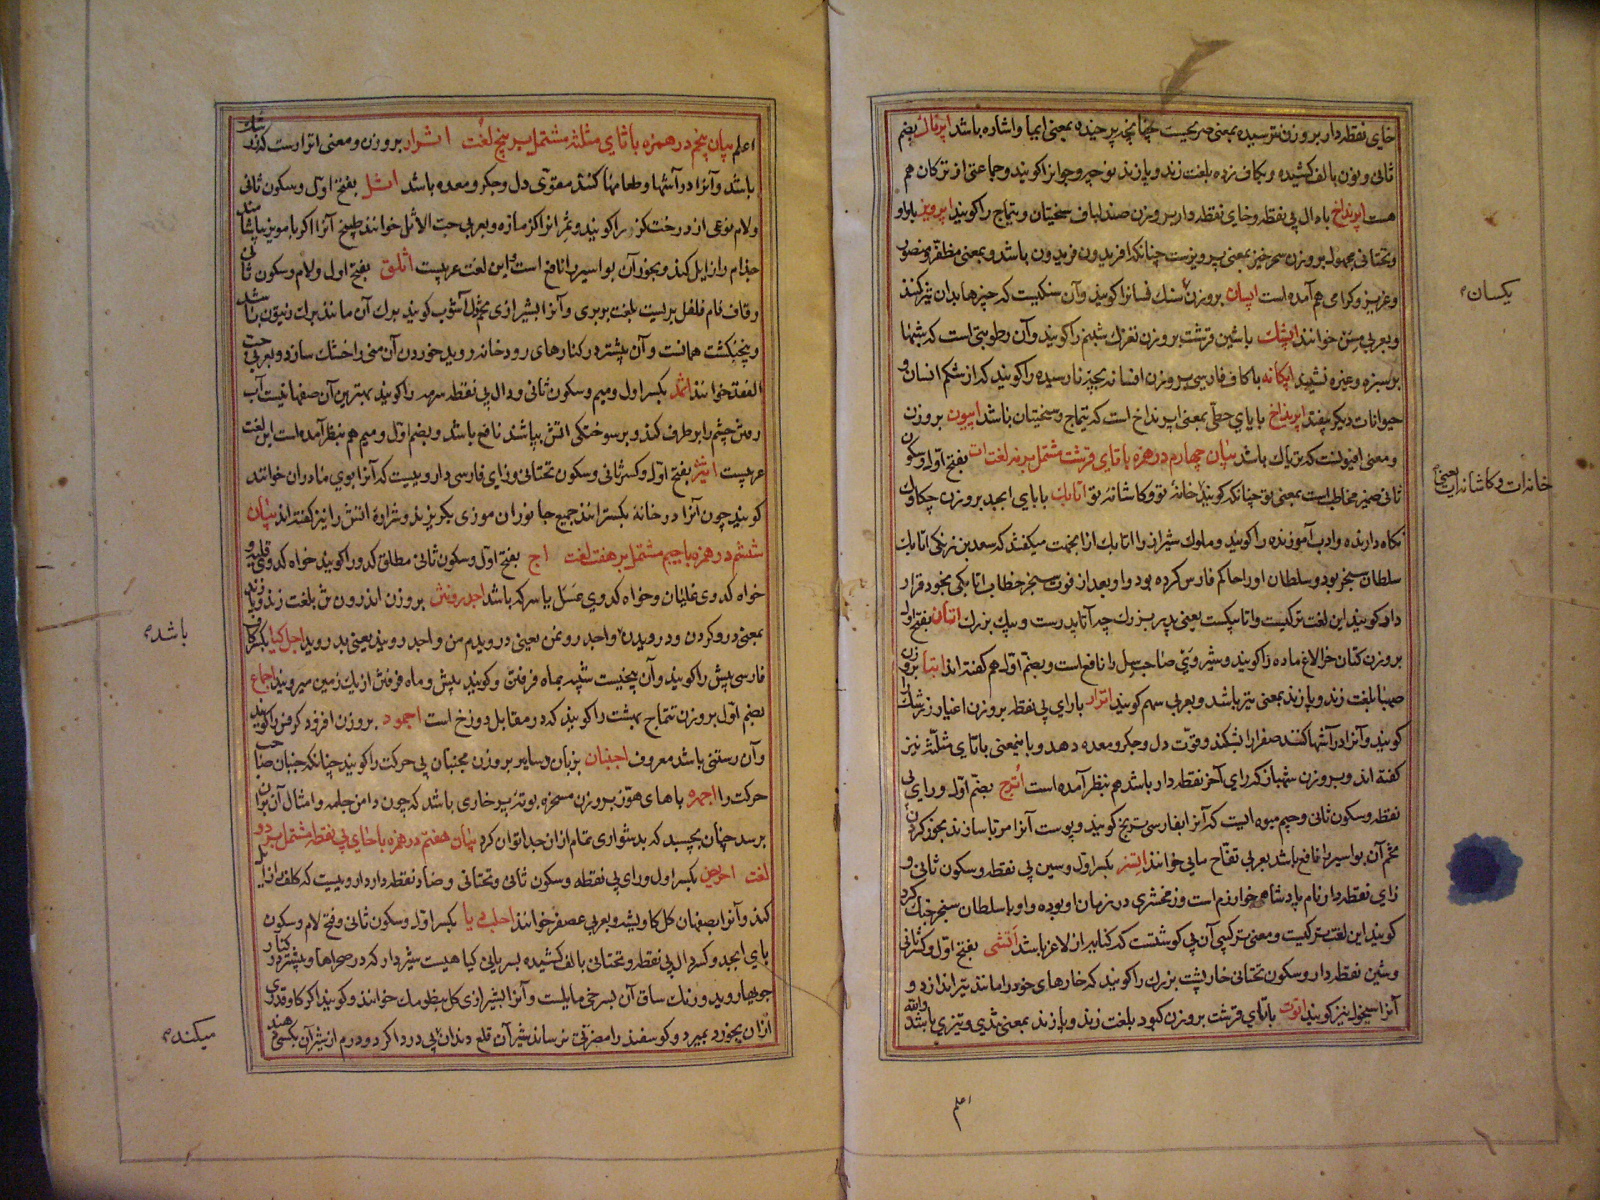 خای نقطه‌دار بر وزن نترسیده بمعنی باشد ایرناك بضم
ثانی و نون بالف کشیده و بکاف زده بلغت زند و پازند نوخیز و جوانرا کویند و جماعتی از ترکان هم
هست اپرنداخ با دال بی نقطه و خای نقطه دار بر وزن سختیان و تیماج را کویند اپرویز با واو
و تحتانی مجهول بر وزن سحرخیز بمعنی پرویزست چنانکه افریدون فریدون باشد و بمعنی مظفر و منصور
و عزیز و کرامی هم آمده است اپسان بر وزن سنك فسانرا کویند و آن سنکیست که چیزها بدان تیز کنند
و بعربی مسن خوانند اپشك با شین قرشت بر وزن شبنم را کویند و آن رطوبتی است که شبها
بر سبزه و غیره نشیند اپکانه با کاف فارسی بر وزن افسانه بچه نارسیده را کویند که از شکم انسان و
حیوانات دیکر بیفتد اپرنداخ با یای حطی بمعنی اپرنداخ است که تیماج و سختیان باشد اپیون بر وزن
و معنی افیونست که تریاك باشد بیان چهارم در همزه با تای قرشت مشتمل بر نه لغت ات بفتح اول و سکون
ثانی ضمیر مخاطب است بمعنی تو چنانکه کویند خانهٔ تو و کاشانهٔ تو اتابك با بای ابجد بر وزن چکاوك
نکاه دارنده و ادب آموزنده را کویند و ملوك شیراز را اتابك از آنجهت میکفتند که سعد بن زنکی اتابك
سلطان سنجر بود و سلطان او را حاکم فارس کرده بود و او بعد از فوت سنجر خطاب اتابکی بخود قرار
داد کویند این لغت ترکیست و اتابیکست یعنی پدر بزرك چه آتا پدرست و بیك بزرك اتان بفتح اول
بر وزن کتان خر الاغ ماده را کویند و شیر وی صاحب سل را نافع است و بضم اول هم کفته اند
بلغت زند و پازند بمعنی تیر باشد و بعربی سهم کویند اترار با رای بی نقطه بر وزن اغیار زرشك
کویند و آنرا در آشها کنند صفرا را بشکند و قوت دل و جکر و معده دهد و باینمعنی با ثای مثلثه نیز
کفته اند و بر وزن شهباز که رای آخر نقطه دار باشد هم بنظر آمده است اترج بضم اول و رای بی
نقطه و سکون ثانی و جیم میوه ایست که آنرا بفارسی ترنج کویند و پوست آنرا مربا سازند بخور کردن
تخم آن بواسیر را نافع باشد بعربی تفاح مایی خوانند اتسز بکسر اول و سین بی نقطه و سکون ثانی و
زای نقطه دار نام پادشاهی خوارزم است و زمخشری در زمان او بوده و او با سلطان سنجر جنك کرد
کویند این لغت ترکیست و معنی ترکیبی آن بی کوشتست که کنایه از لاغر باشد اتشی بفتح اول و کسر ثانی
و شین نقطه دار و سکون تحتانی خار پشت بزرك را کویند که خارهای خود را مانند تیر اندازد و
آنرا سیخول نیز کویند اتوت با تای قرشت بر وزن کبود بلغت زند و پازند بمعنی تندی و تیزی باشد والله
اعلم
یکسان
خانه‌ات و کاشانه‌ات یعنی
اعلم بیان پنجم در همزه با ثای مثلثه مشتمل بر پنج لغت اثرار بر وزن و معنی اترارست که زرشك
باشد و آنرا در آشها و طعامها کنند مقوی دل و جکر و معده باشد اثل بفتح اول و سکون ثانی
و لام نوعی از درخت کز را کویند و ثمر آنرا کزمازه و بعربی حب الاثل خوانند طبیخ آنرا اکر با مویز بیاشامند
جذام را زایل کند و بخور آن بواسیر را نافع است و این لغت عربیست اثلق بفتح اول و لام و سکون ثانی
و قاف نام فلفل بریست بلغت بربری و آنرا بشیرازی کویند برك آن مانند برك زیتون باشد
و پنجنکشت همانست و آن بیشتر در کنارهای رودخانه روید خوردن آن منی را خشك سازد و بعربی حب
الفقد خوانند اثمد بکسر اول و میم و سکون ثانی و دال بی نقطه سرمه را کویند بهترین آن صفهانیست آب
رفتن چشم را برطرف کند و بر سوختکی آتش بپاشند نافع باشد و بضم اول و میم هم بنظر آمده است این لغت
عربیست اثیر بفتح اول و کسر ثانی و سکون تحتانی و زای فارسی داروییست که آنرا بوی مادران خوانند
کویند چون آنرا در خانه بکسترانند جمیع جانوران موذی بکریزند و شرارهٔ آتش را نیز کفته اند بیان
ششم در همزه با جیم مشتمل بر هفت لغت اج بفتح اول و سکون ثانی مطلق کدو را کویند خواه کدوی قلیه و
خواه کدوی غلیان و خواه کدوی عسل یا سرکه باشد اجدرونتن بر وزن اندرون تن بلغت زند و پازند
بمعنی درو کردن و درویدن و اجدرونمن یعنی درویدم من و اجدروند یعنی بدروید اجل کیا بکسر کاف
فارسی بیش را کویند و آن بیخیست شبیه بماه فرفین و کویند بیش و ماه فرفین از یك زمین میرویند اجماع
بضم اول بر وزن تتماج بهشت را کویند که در مقابل دوزخ است اجمود بر وزن افزود کرفس را کویند
و آن رستنی باشد معروف اجنبان بزبان و سایر بر وزن مجنبان بی حرکت را کویند چنانکه جنبان صاحب
حرکت را اجمره با های هوز بر وزن مسخره بوته پر خاری باشد که چون دامن جامه و امثال آن بران
برسد چنان بچسبد که بدشواری تمام از آن جدا توان کرد بیان هفتم در همزه با حای بی نقطه مشتمل بر دو
لغت احریض بکسر اول و رای بی نقطه و سکون ثانی و تحتانی و ضاد نقطه دار داروییست که کلف زایل
کند و آنرا بصفهان کل کاویشه و بعربی عصفر خوانند احلب یا بکسر اول و سکون ثانی و فتح لام و سکون
بای ابجد و کسر دال بی نقطه و تحتانی بالف کشیده بسریانی کیاهیست شیردار که در صحراها و بیشتر در کنار
جویها روید و رنك ساق آن بسرخی مایلست و آنرا بشیرازی کل خوانند و کویند اکر کاو قدری
ازان بخورد بمیرد و کوسفند را مضرتی نرساند شیر آن قلع دندان بی درد اکر دو درم از شیر آن بکسی دهند
باشد
میکند